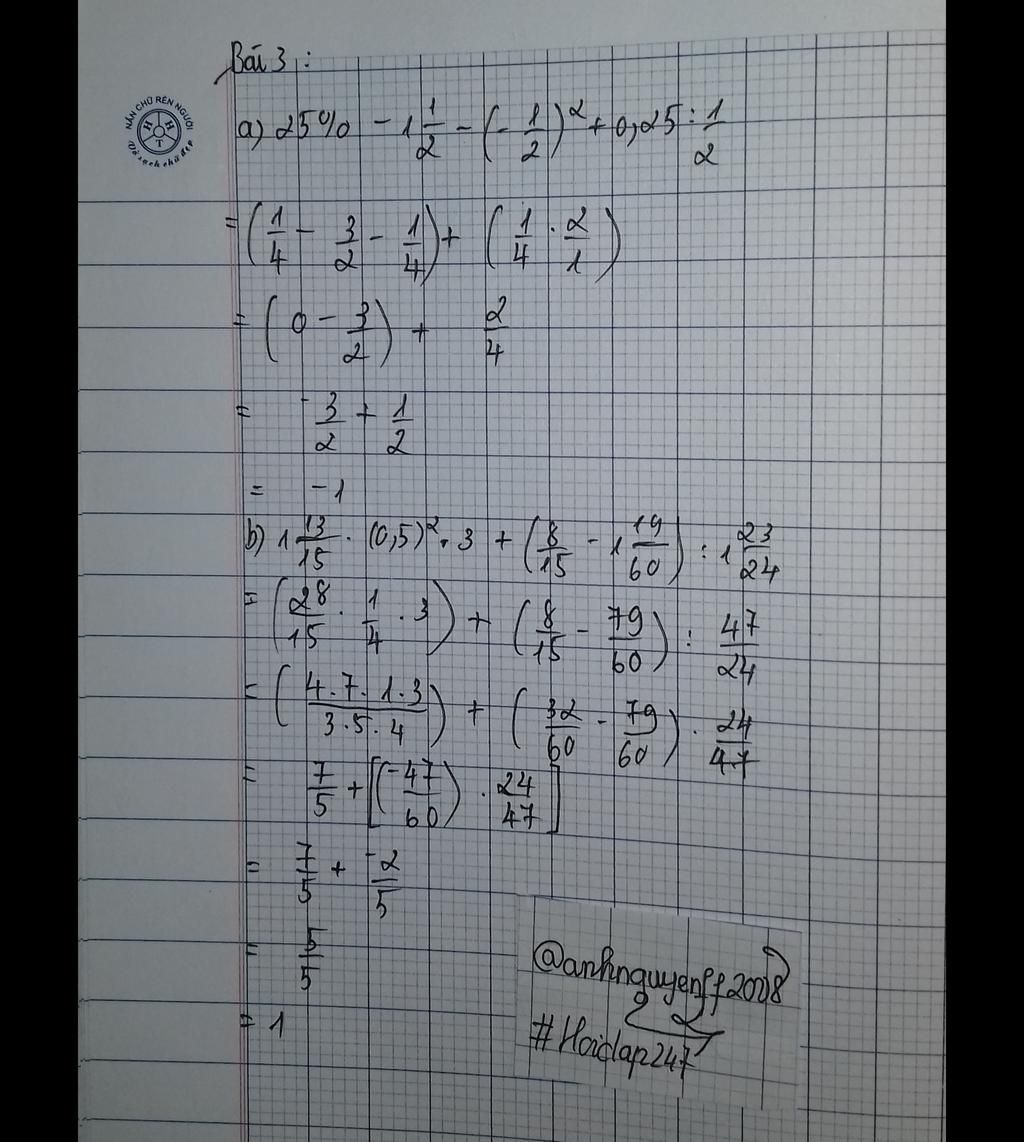 Bài 3:
NẮN CHỮ RÈN NGƯỜI
H H T
Vở sạch chữ đẹp
a) 25% - 1 1/2 - (-1/2)² + 0,25 : 1/2
= (1/4 - 3/2 - 1/4) + (1/4 . 2/1)
= (0 - 3/2) + 2/4
= -3/2 + 1/2
= -1
b) 1 13/15 . (0,5)² . 3 + (8/15 - 1 19/60) : 1 23/24
= (28/15 . 1/4 . 3) + (8/15 - 79/60) : 47/24
= (4.7.1.3/3.5.4) + (32/60 - 79/60) . 24/47
= 7/5 + [(-47/60) . 24/47]
= 7/5 + -2/5
= 5/5
= 1
@anhnguyenff2008
#Hoidap247